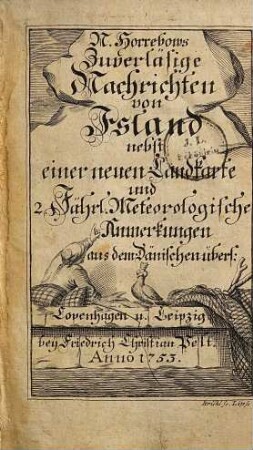 N. Horrebows
Zuverläsige
Nachrichten
von
Island
nebst
einer neuen Landkarte
und
2. Jährl. Meteorologische
Anmerkungen
aus dem Dänischen übers:
Copenhagen u. Leipzig
bey Friedrich Christian Pelt.
Anno 1753.